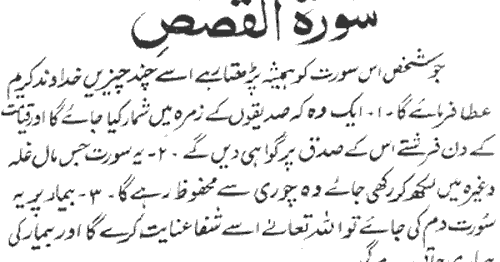 سورۃ القصص
جو شخص اس سورت کو ہمیشہ پڑھتا رہے اسے چند چیزیں خداوند کریم
عطا فرمائے گا ۔ ۱۔ ایک وہ کہ صدیقوں کے زمرہ میں شمار کیا جائے گا اور قیامت
کے دن فرشتے اس کے صدق پر گواہی دیں گے ۔ ۲۔ یہ سورت جس مال غلہ
وغیرہ میں لکھ کر رکھی جائے وہ چوری سے محفوظ رہے گا ۔ ۳۔ بیمار پر یہ
سورت دم کی جائے تو اللہ تعالےٰ اسے شفا عنایت کرے گا اور بیمار کی